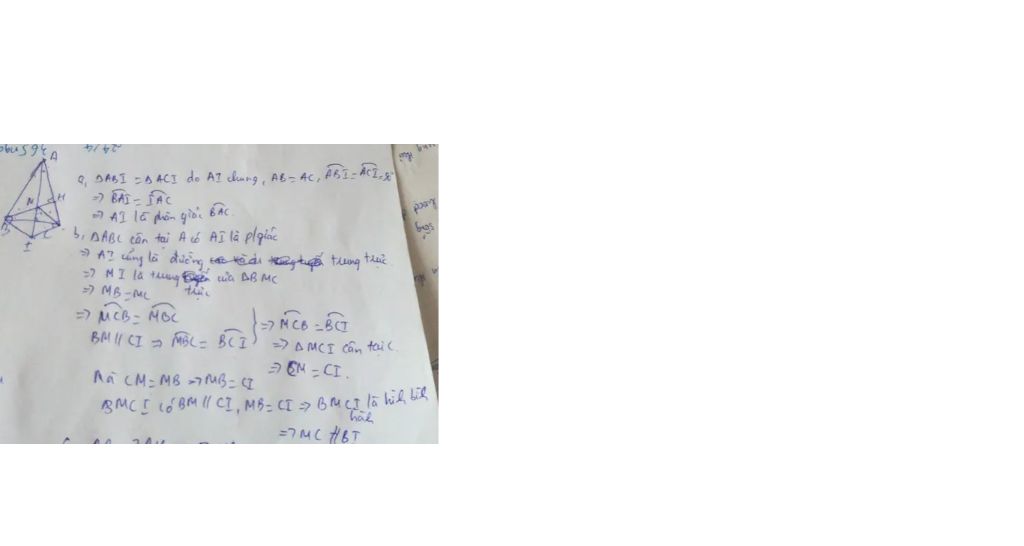 A
a, ΔABI = ΔACI do AI chung, AB = AC, ABI = ACI = 90°
=> BAI = IAC
=> AI là phân giác BAC.
b, ΔABC cân tại A có AI là p/giác
=> AI cũng là đường trung trực.
=> MI là trung trực của ΔBMC
=> MB = MC
=> MCB = MBC
BM // CI => MBC = BCI } => MCB = BCI
=> Δ MCI cân tại C.
=> CM = CI.
Mà CM = MB => MB = CI
BMCI có BM // CI, MB = CI => BMCI là hình bình hành
=> MC // BI
H
M
B
C
I